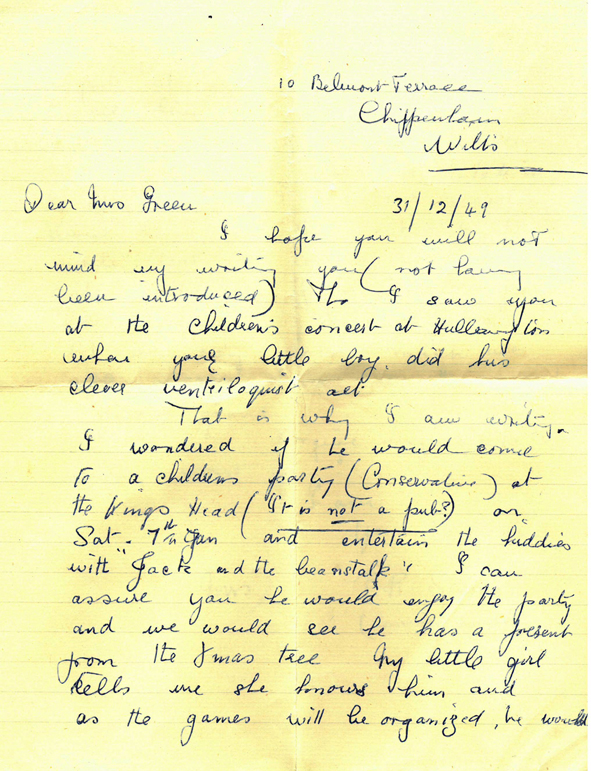 10 Belmont Terrace
Chippenham
Wilts
Dear Mrs Green 31/12/49
I hope you will not
mind my writing you (not having
been introduced) Tho I saw you
at the Children's concert at Hullavington
when your little boy did his
clever ventriloquist act
That is why I am writing.
I wondered if he would come
to a childrens party (Conservative) at
the Kings Head (It is not a pub?) on
Sat. 7th Jan and entertain the kiddies
with "Jack and the beanstalk" I can
assure you he would enjoy the party
and we would see he has a present
from the Xmas tree My little girl
tells me she knows him and
as the games will be organized, he would